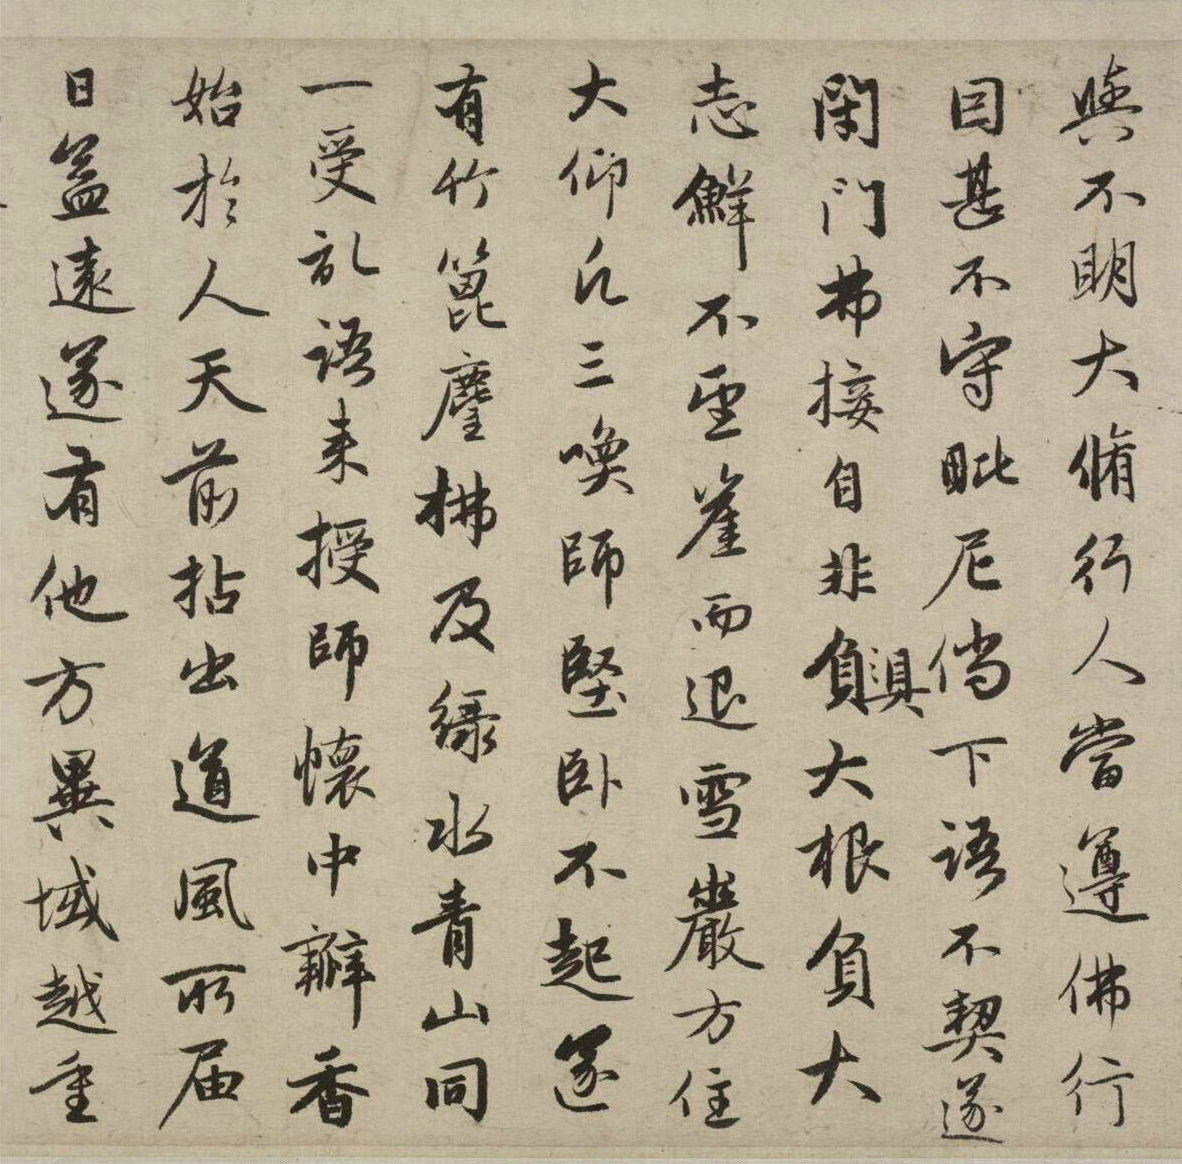 與不明大脩行人當遵佛行
因甚不守毗尼倘下語不契遂
閉門弗接自非負具大根負大
志鮮不望崖而退雪巖方住
大仰凡三喚師堅卧不起遂
有竹篦麈拂及緑水青山同
一受記語来授師懷中瓣香
始於人天前拈出道風所届
日益遠遂有他方異域越重